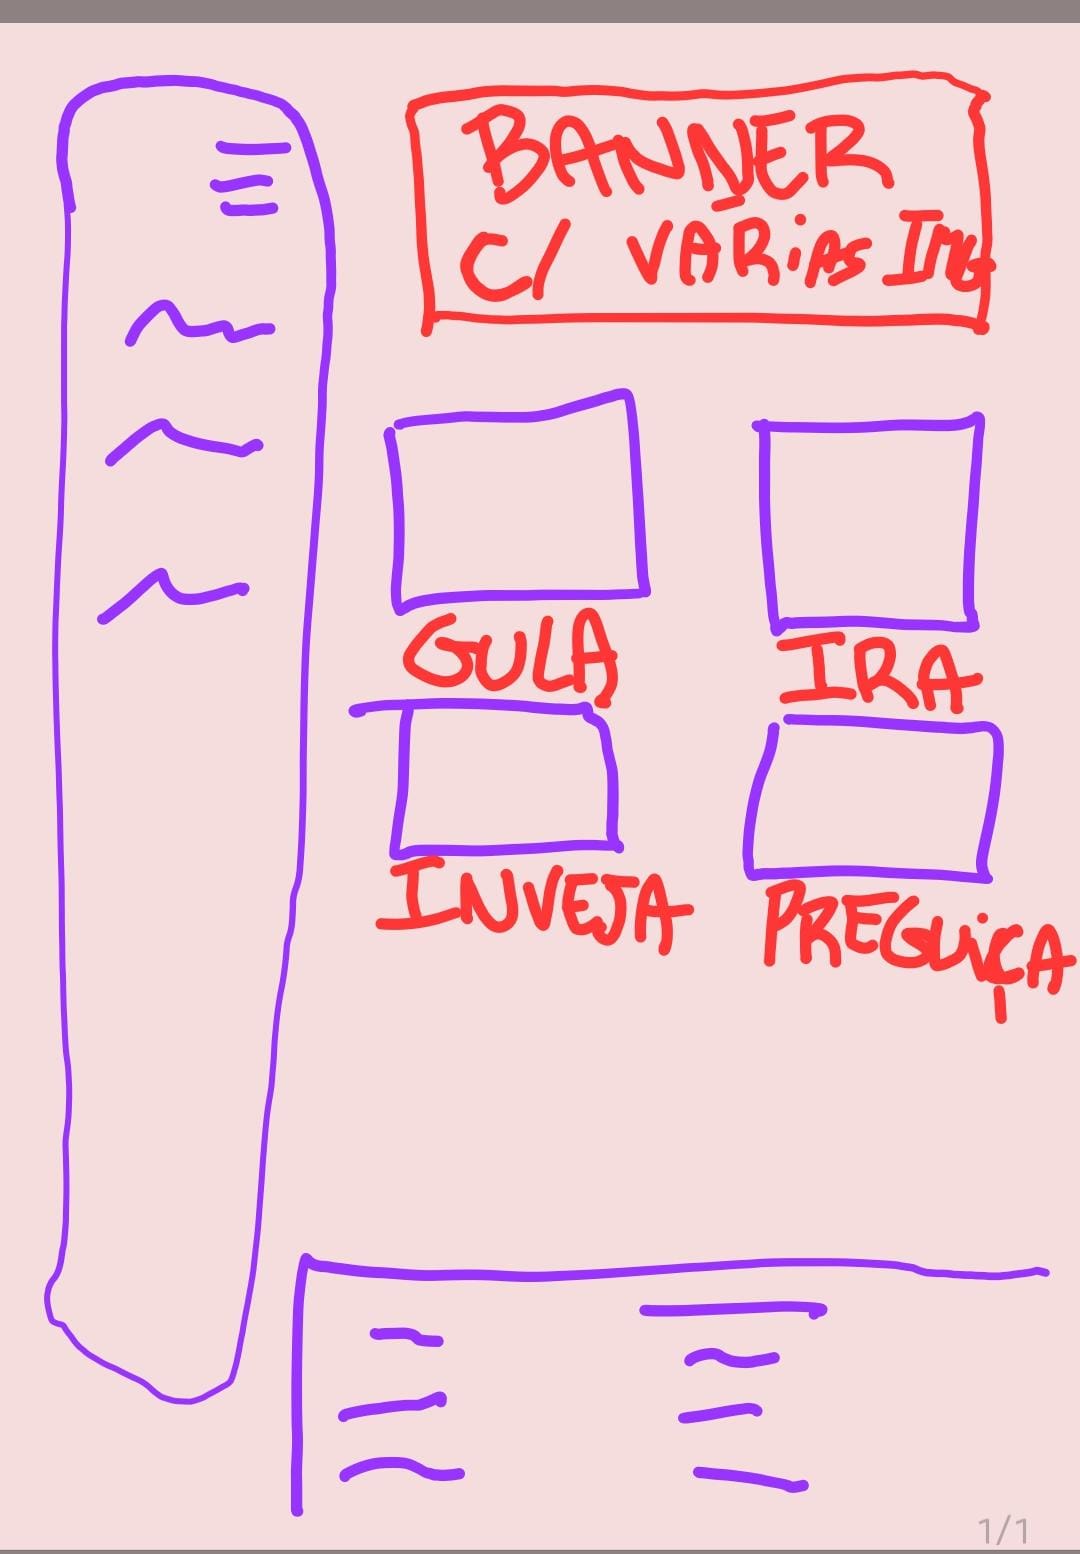 BANNER
C/ VARiAS IMG
GULA
IRA
INVEJA
PREGUiÇA
1/1